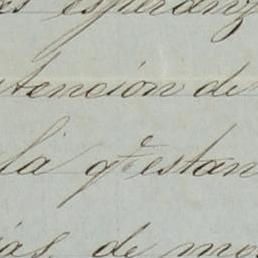 es esperanz
tención de
la qe estan
ias, de mo